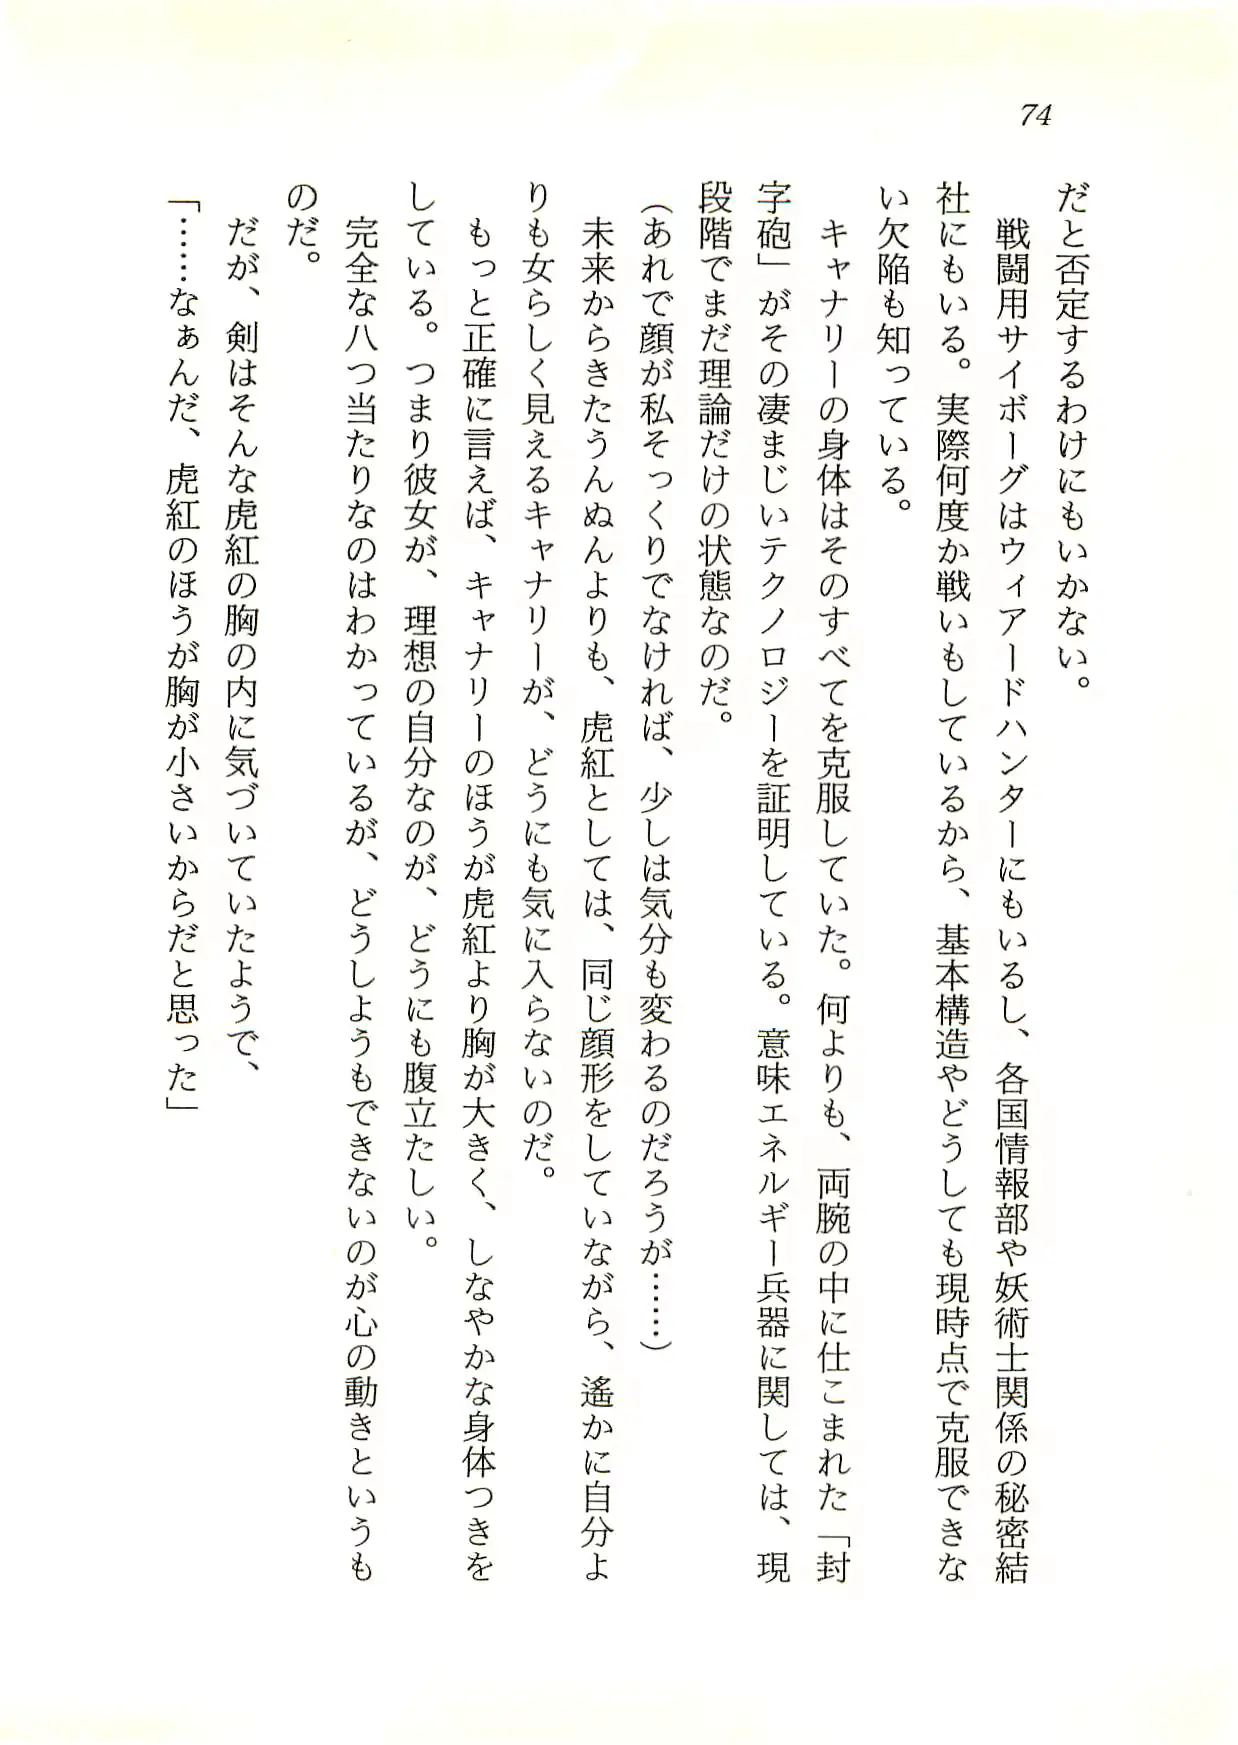 74
だと否定するわけにもいかない。
　戦闘用サイボーグはウィアードハンターにもいるし、各国情報部や妖術士関係の秘密結
社にもいる。実際何度か戦いもしているから、基本構造やどうしても現時点で克服できな
い欠陥も知っている。
　キャナリーの身体はそのすべてを克服していた。何よりも、両腕の中に仕こまれた「封
字砲」がその凄まじいテクノロジーを証明している。意味エネルギー兵器に関しては、現
段階でまだ理論だけの状態なのだ。
（あれで顔が私そっくりでなければ、少しは気分も変わるのだろうが……）
　未来からきたうんぬんよりも、虎紅としては、同じ顔形をしていながら、遙かに自分よ
りも女らしく見えるキャナリーが、どうにも気に入らないのだ。
　もっと正確に言えば、キャナリーのほうが虎紅より胸が大きく、しなやかな身体つきを
している。つまり彼女が、理想の自分なのが、どうにも腹立たしい。
　完全な八つ当たりなのはわかっているが、どうしようもできないのが心の動きというも
のだ。
　だが、剣はそんな虎紅の胸の内に気づいていたようで、
「……なぁんだ、虎紅のほうが胸が小さいからだと思った」